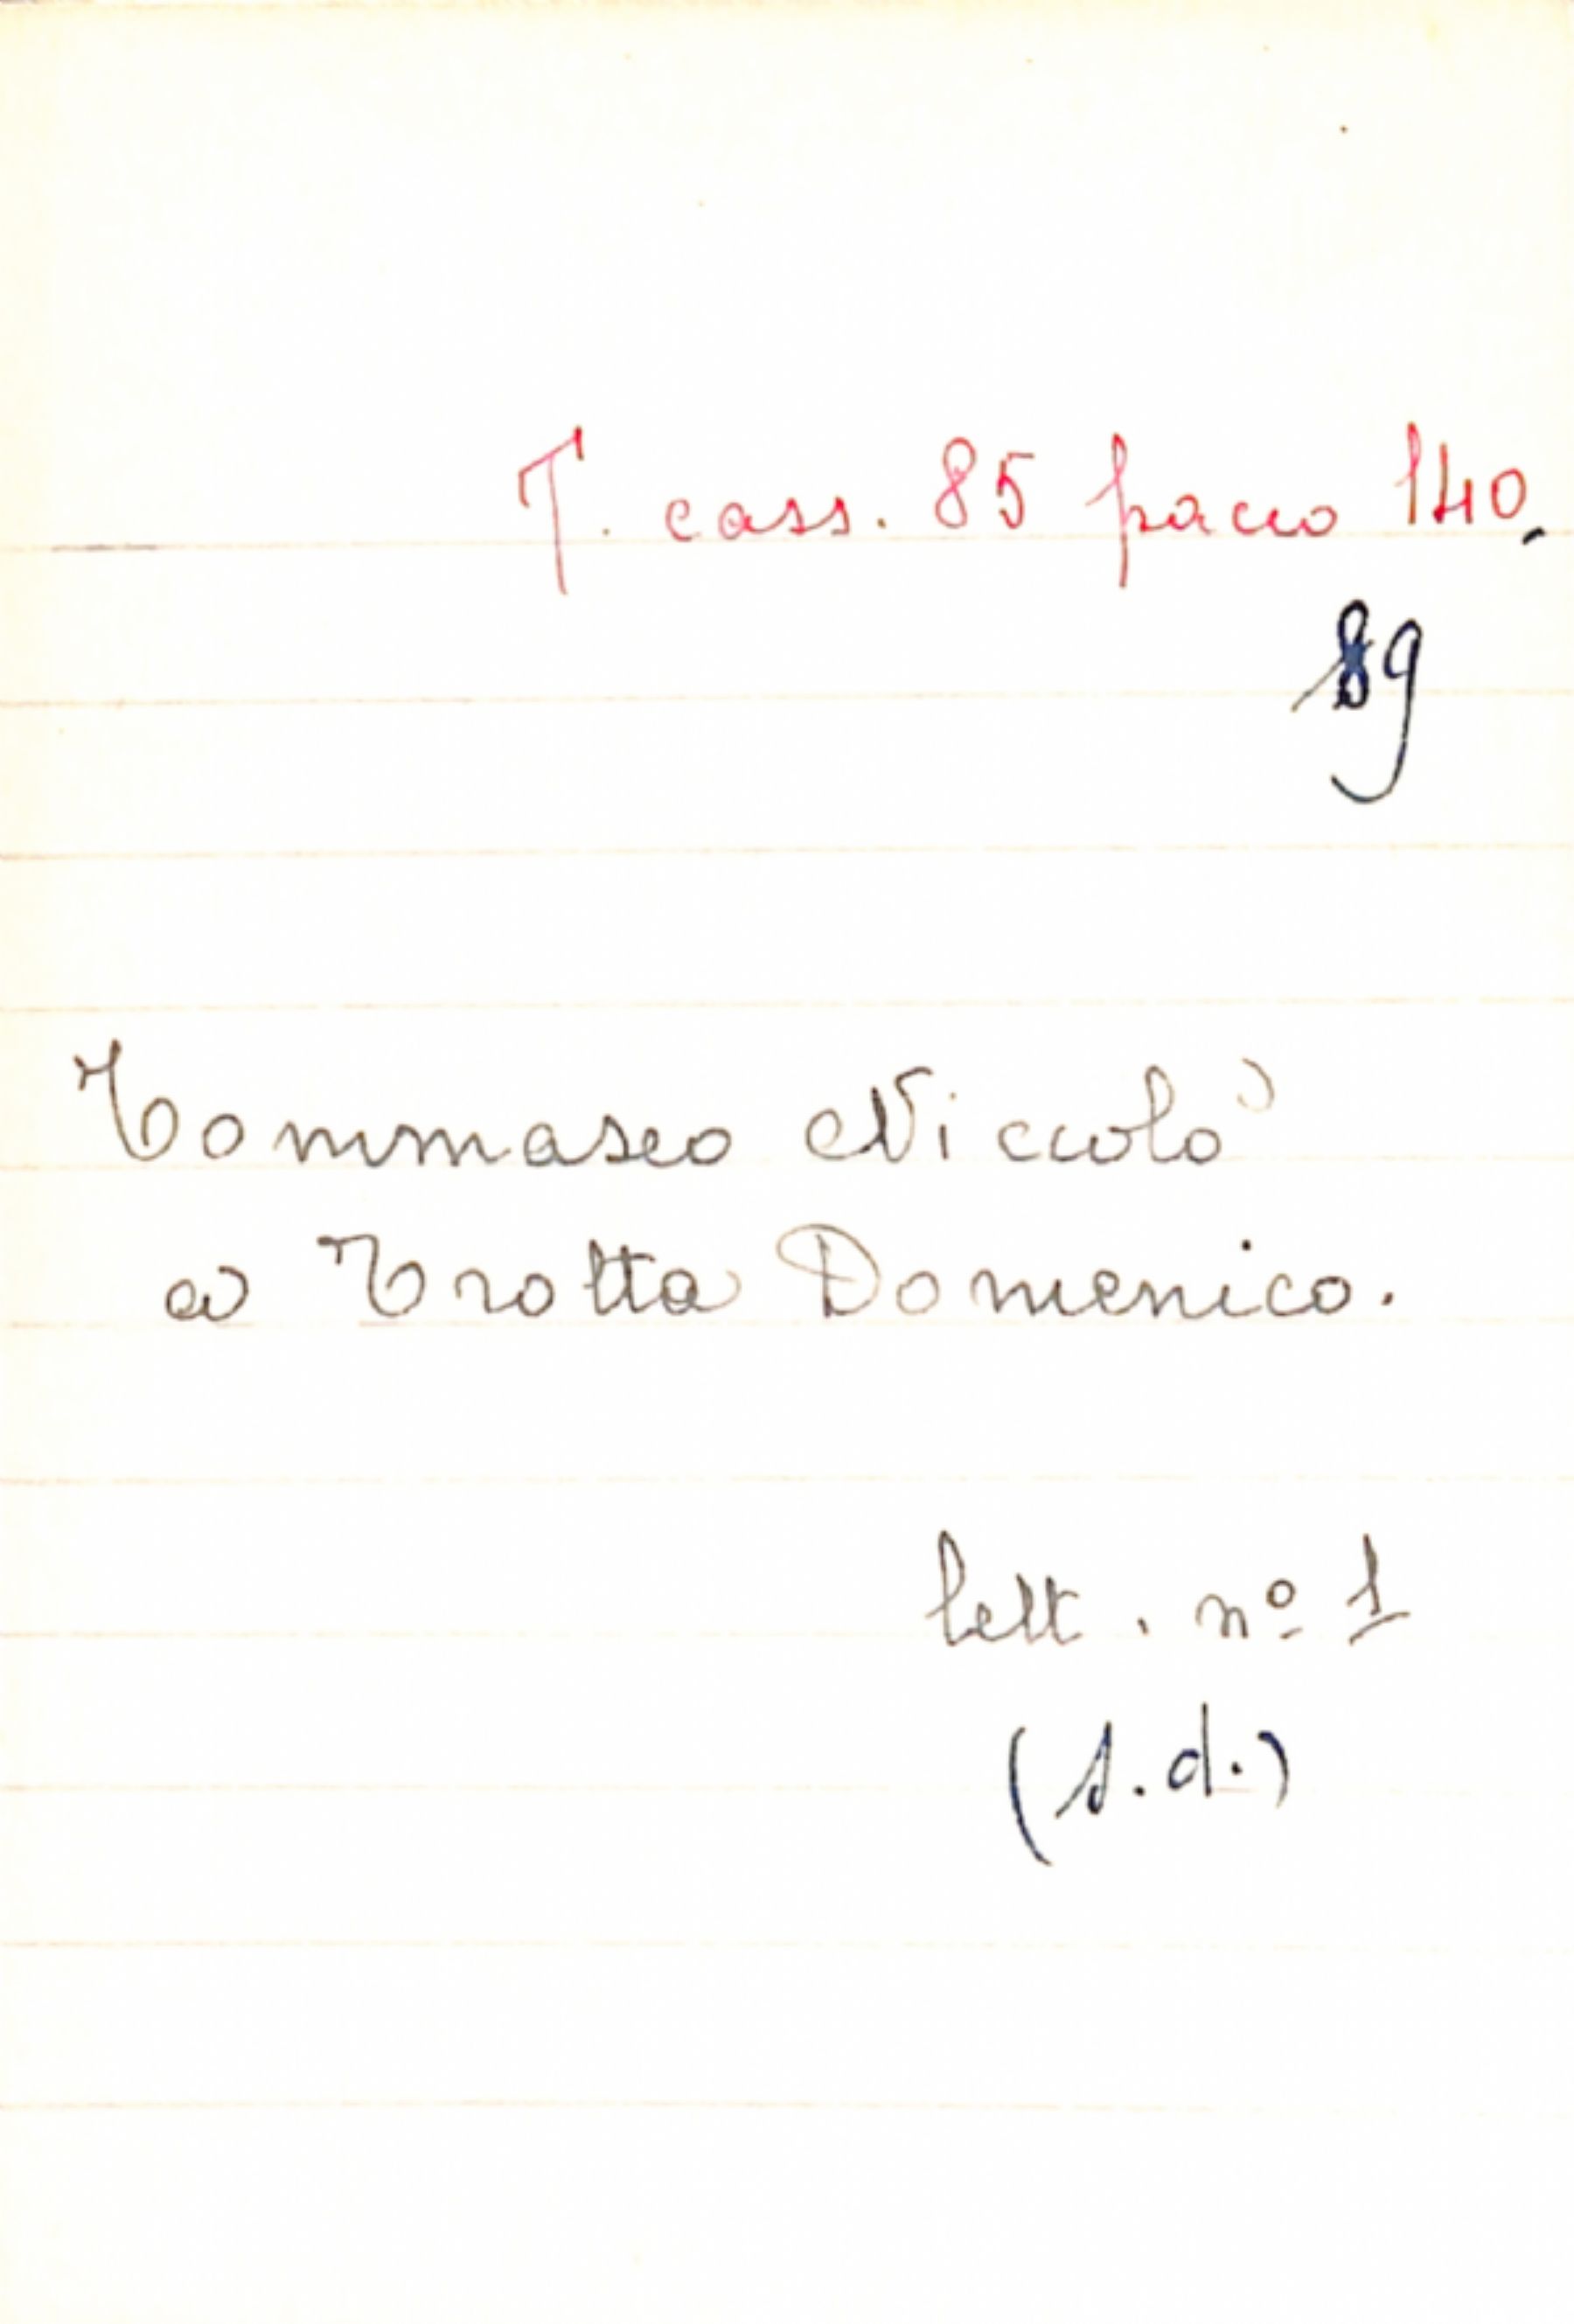 T. cass. 85 pacco 140.
89
Tommaseo Niccolò
a Trotta Domenico.
lett. nº 1
(s.d.)